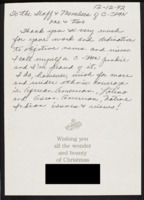 12-12-92
To the Staff & Members of C-SPAN
one & two
Thank you so very much
for your work and dedication
to objective news and views.
I call myself a C-SPAN junkie
and I'm proud of it.
I do, however, wish for more
and wider ethnic coverage
in African American, Latino
and Asian American, Native
Indian issues & views!
Wishing you
all the wonder
and beauty
of Christmas